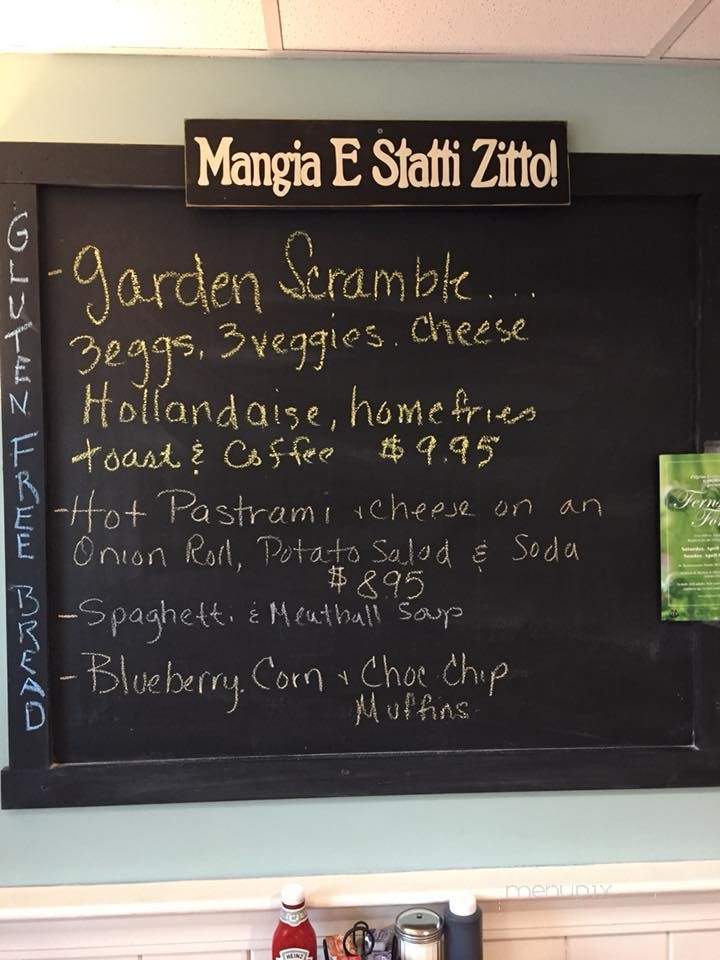 Mangia E Statti Zitto!
GLUTEN FREE BREAD
-Garden Scramble...
3eggs, 3veggies. Cheese
Hollandaise, homefries
toast & Coffee $9.95
-Hot Pastrami + cheese on an
Onion Roll, Potato Salad & Soda
$8.95
-Spaghetti & Meatball Soup
-Blueberry. Corn + Choc Chip
Muffins
Saturday, April
Sunday, April
HEINZ
menupix